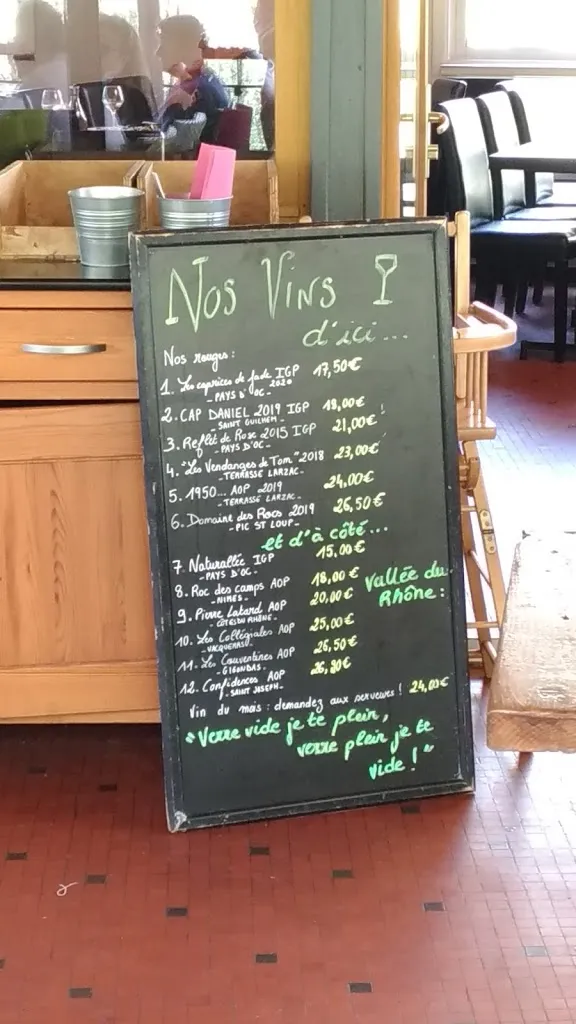 Nos Vins
d'ici...
Nos rouges :
1. Les caprices de jade IGP 17,50€
- PAYS D'OC - 2020
2. CAP DANIEL 2019 IGP 18,00€
- SAINT GUILHEM -
3. Reflet de Rose 2015 IGP 21,00€
- PAYS D'OC -
4. "Les Vendanges de Tom" 2018 23,00€
- TERRASSE LARZAC
5. 1950... AOP 2019 24,00€
- TERRASSE LARZAC -
6. Domaine des Rocs 2019 26,50€
- PIC ST LOUP -
et d'à côté...
7. Naturallée IGP 15,00€
- PAYS D'OC -
8. Roc des camps AOP 18,00€
- NIMES -
9. Pierre AOP 20,00€
- CÔTES DU RHÔNE -
Vallée du
Rhône :
10. Les Collégiales AOP 25,00€
- VACQUEYRAS -
11. Les Couventines AOP 26,50€
- GIGONDAS -
12. Confidences AOP
- SAINT JOSEPH -
Vin du mois : demandez aux serveurs ! 24,00€
"Verre vide je te plein,
verre plein je te
vide ! "